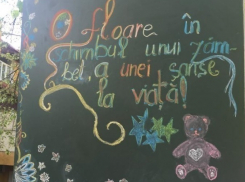 O floare în
schimbul unui zâm-
bet, a unei șanse
la viață!